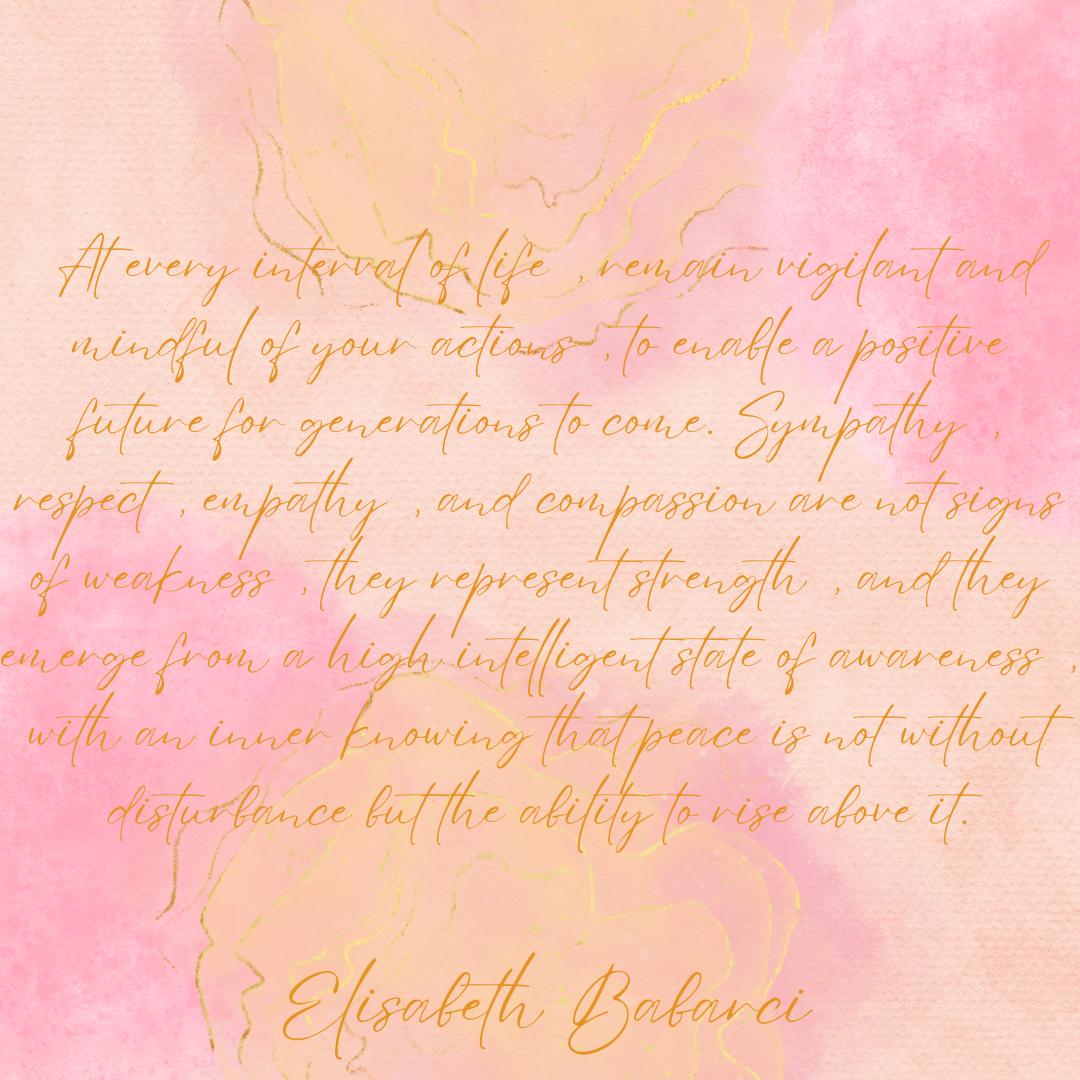 At every interval of life , remain vigilant and
mindful of your actions , to enable a positive
future for generations to come. Sympathy ,
respect , empathy , and compassion are not signs
of weakness , they represent strength , and they
emerge from a high intelligent state of awareness ,
with an inner knowing that peace is not without
disturbance but the ability to rise above it.
Elisabeth Babarci